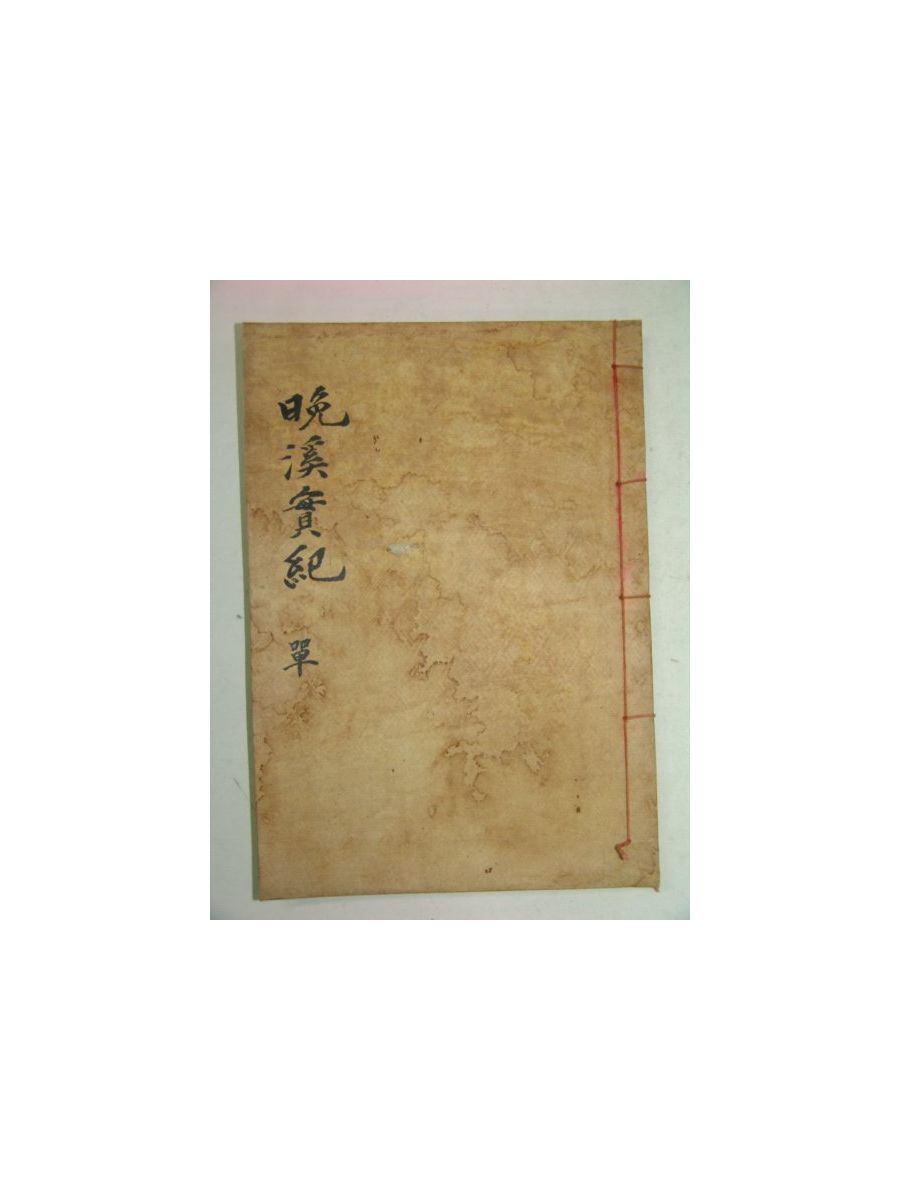 晩溪實紀
單